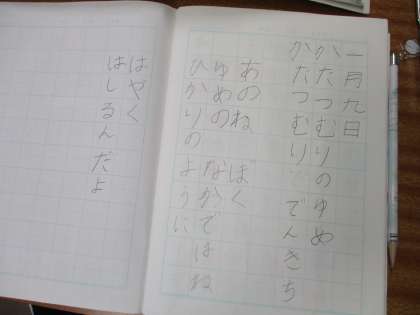 一月九日
かたつむりのゆめ
かたつむり でんきち
あのね ぼく
ゆめの なかでは ね
ひかりの ように
はやく
はしるんだよ